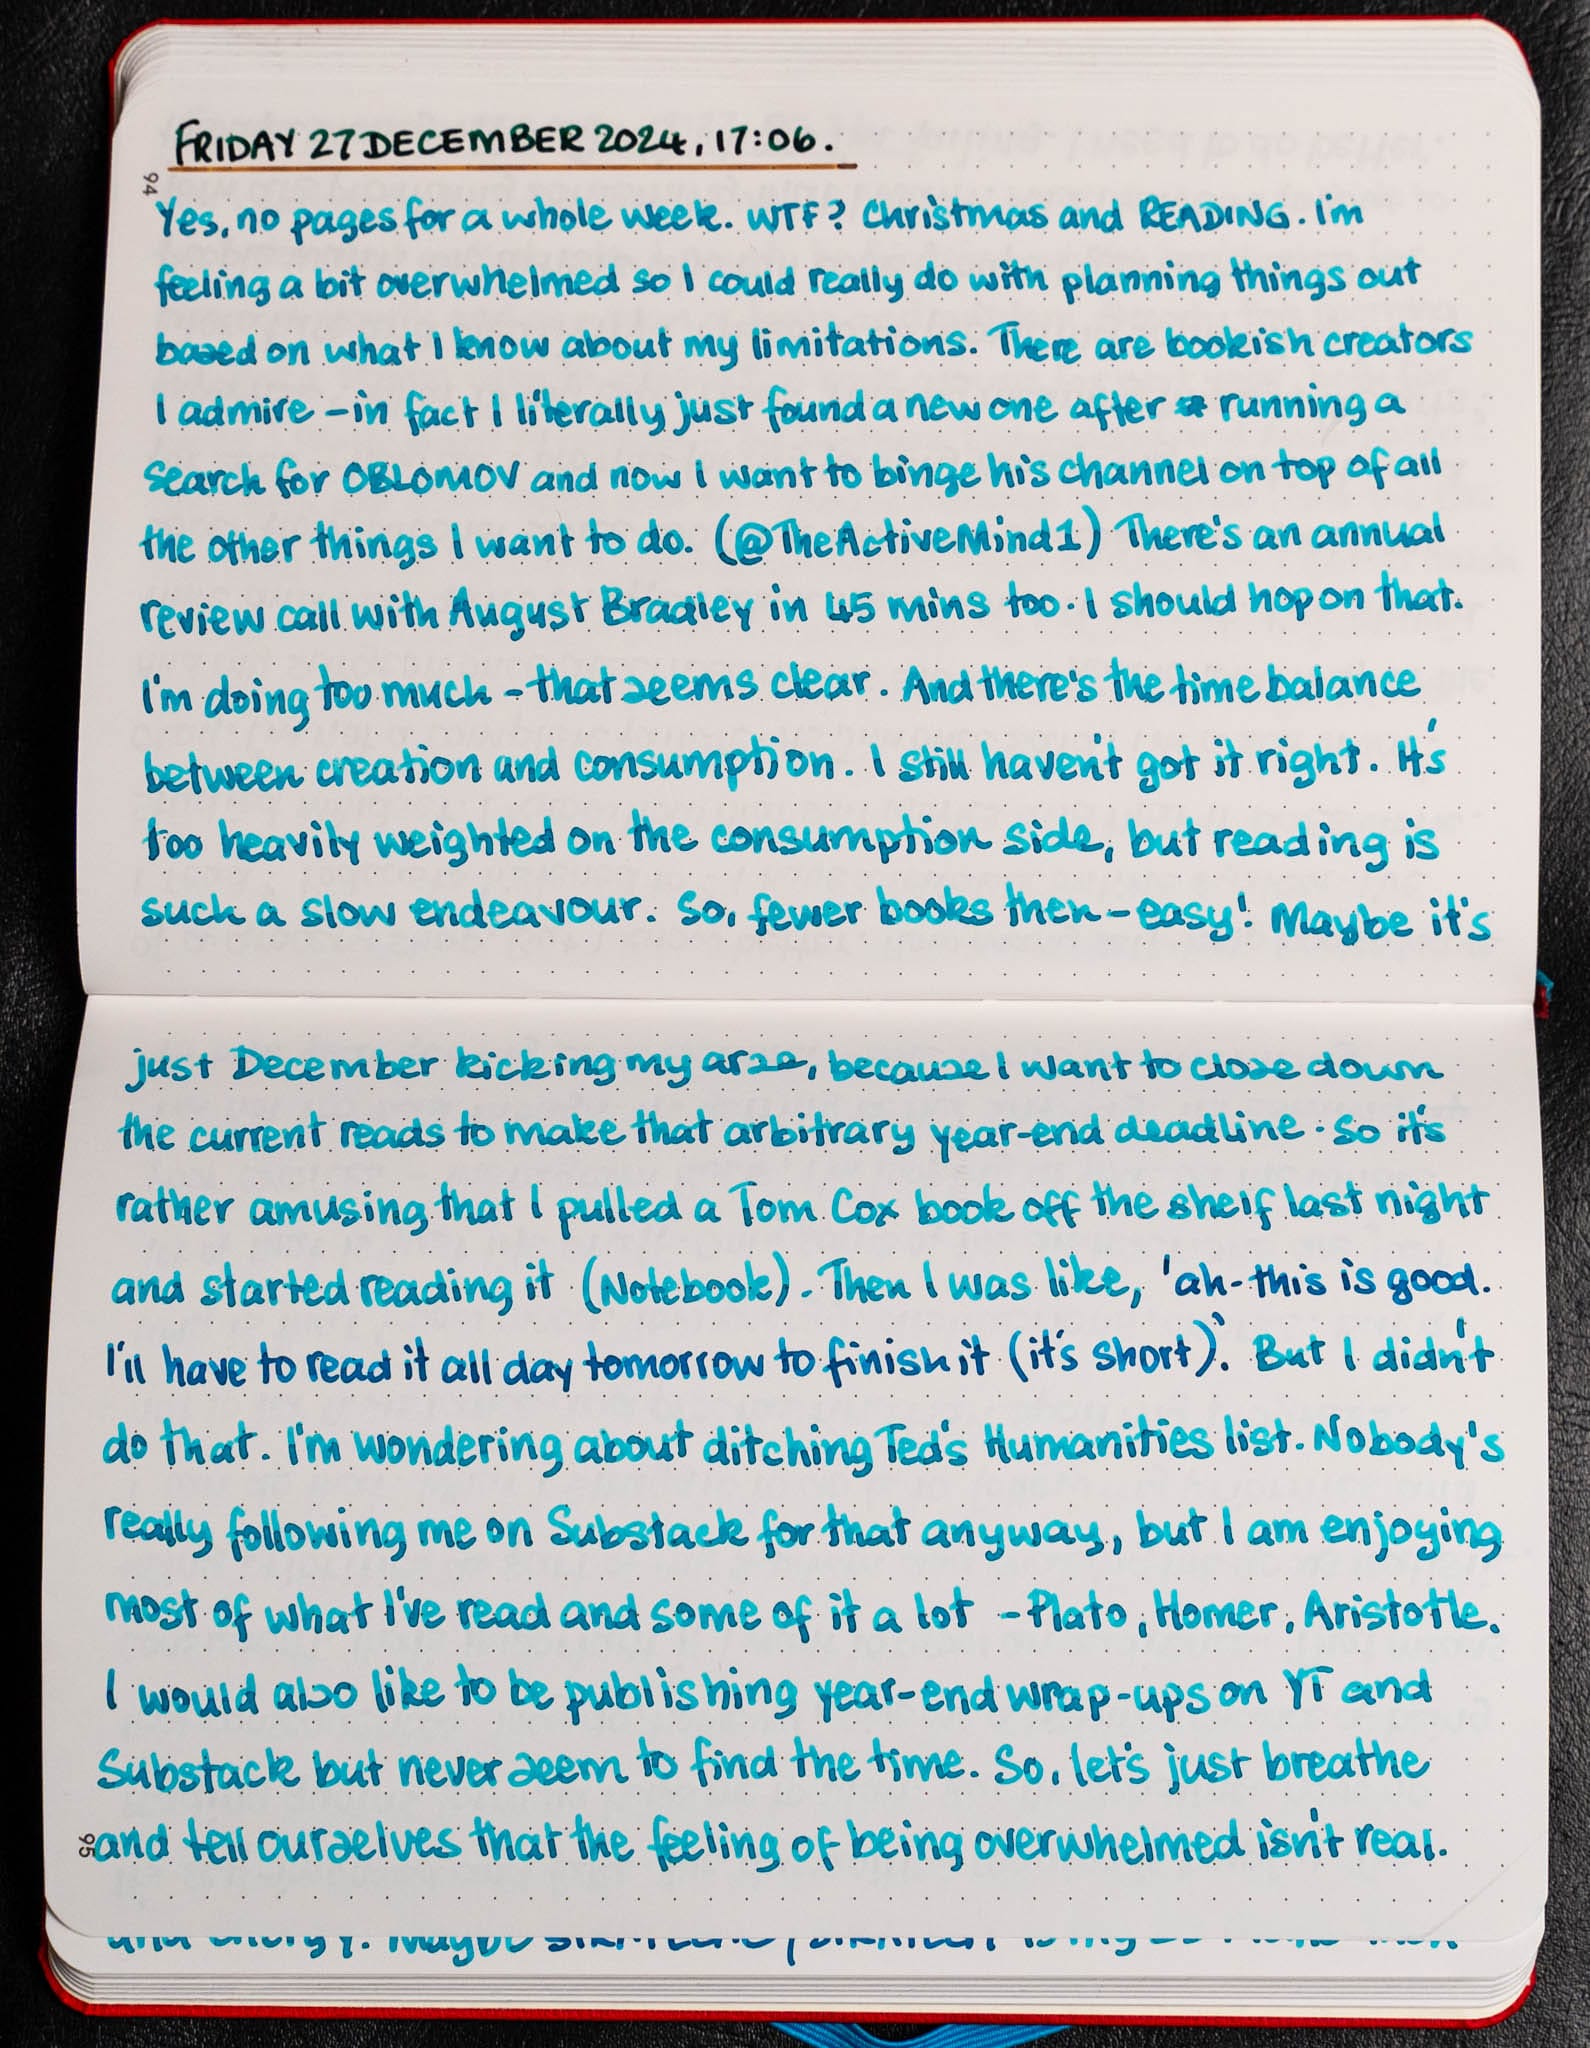 FRIDAY 27 DECEMBER 2024, 17:06.
94
Yes, no pages for a whole week. WTF? Christmas and READING. I'm
feeling a bit overwhelmed so I could really do with planning things out
based on what I know about my limitations. There are bookish creators
I admire – in fact I literally just found a new one after running a
search for OBLOMOV and now I want to binge his channel on top of all
the other things I want to do. (@TheActiveMind1) There's an annual
review call with August Bradley in 45 mins too. I should hop on that.
I'm doing too much – that seems clear. And there's the time balance
between creation and consumption. I still haven't got it right. It's
too heavily weighted on the consumption side, but reading is
such a slow endeavour. So, fewer books then – easy! Maybe it's
just December kicking my arse, because I want to close down
the current reads to make that arbitrary year-end deadline. So it's
rather amusing that I pulled a Tom Cox book off the shelf last night
and started reading it (Notebook). Then I was like, 'ah - this is good.
I'll have to read it all day tomorrow to finish it (it's short)'. But I didn't
do that. I'm wondering about ditching Ted's Humanities list. Nobody's
really following me on Substack for that anyway, but I am enjoying
most of what I've read and some of it a lot – Plato, Homer, Aristotle.
I would also like to be publishing year-end wrap-ups on YT and
Substack but never seem to find the time. So, let's just breathe
95
and tell ourselves that the feeling of being overwhelmed isn't real.
and energy. Maybe